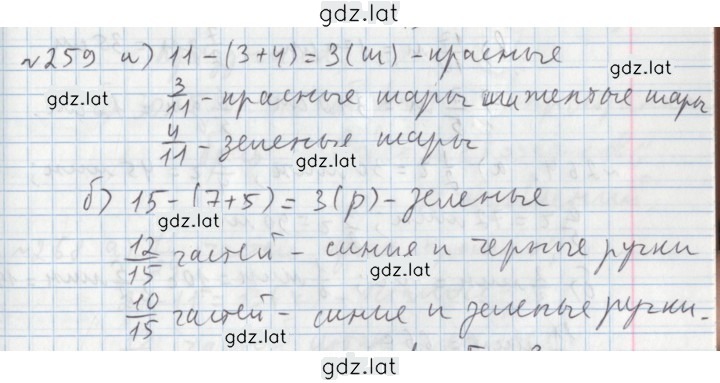 gdz.lat
№259 а) 11 - (3+4) = 3(ш) - красные
gdz.lat
3/11 - красные шары или желтые шары
4/11 - зеленые шары
gdz.lat
б) 15 - (7+5) = 3(р) - зеленые
gdz.lat
12/15 частей - синие и черные ручки
gdz.lat
10/15 частей - синие и зеленые ручки.
gdz.lat
gdz.lat